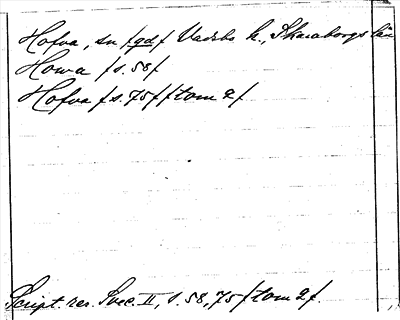 Hofva, sn /gd/ Vadsbo h., Skaraborgs län
Howa /s. 58/
Hofva /s. 75/ /tom 2/
Script. rer. Svec. II, s. 58, 75 /tom 2/.